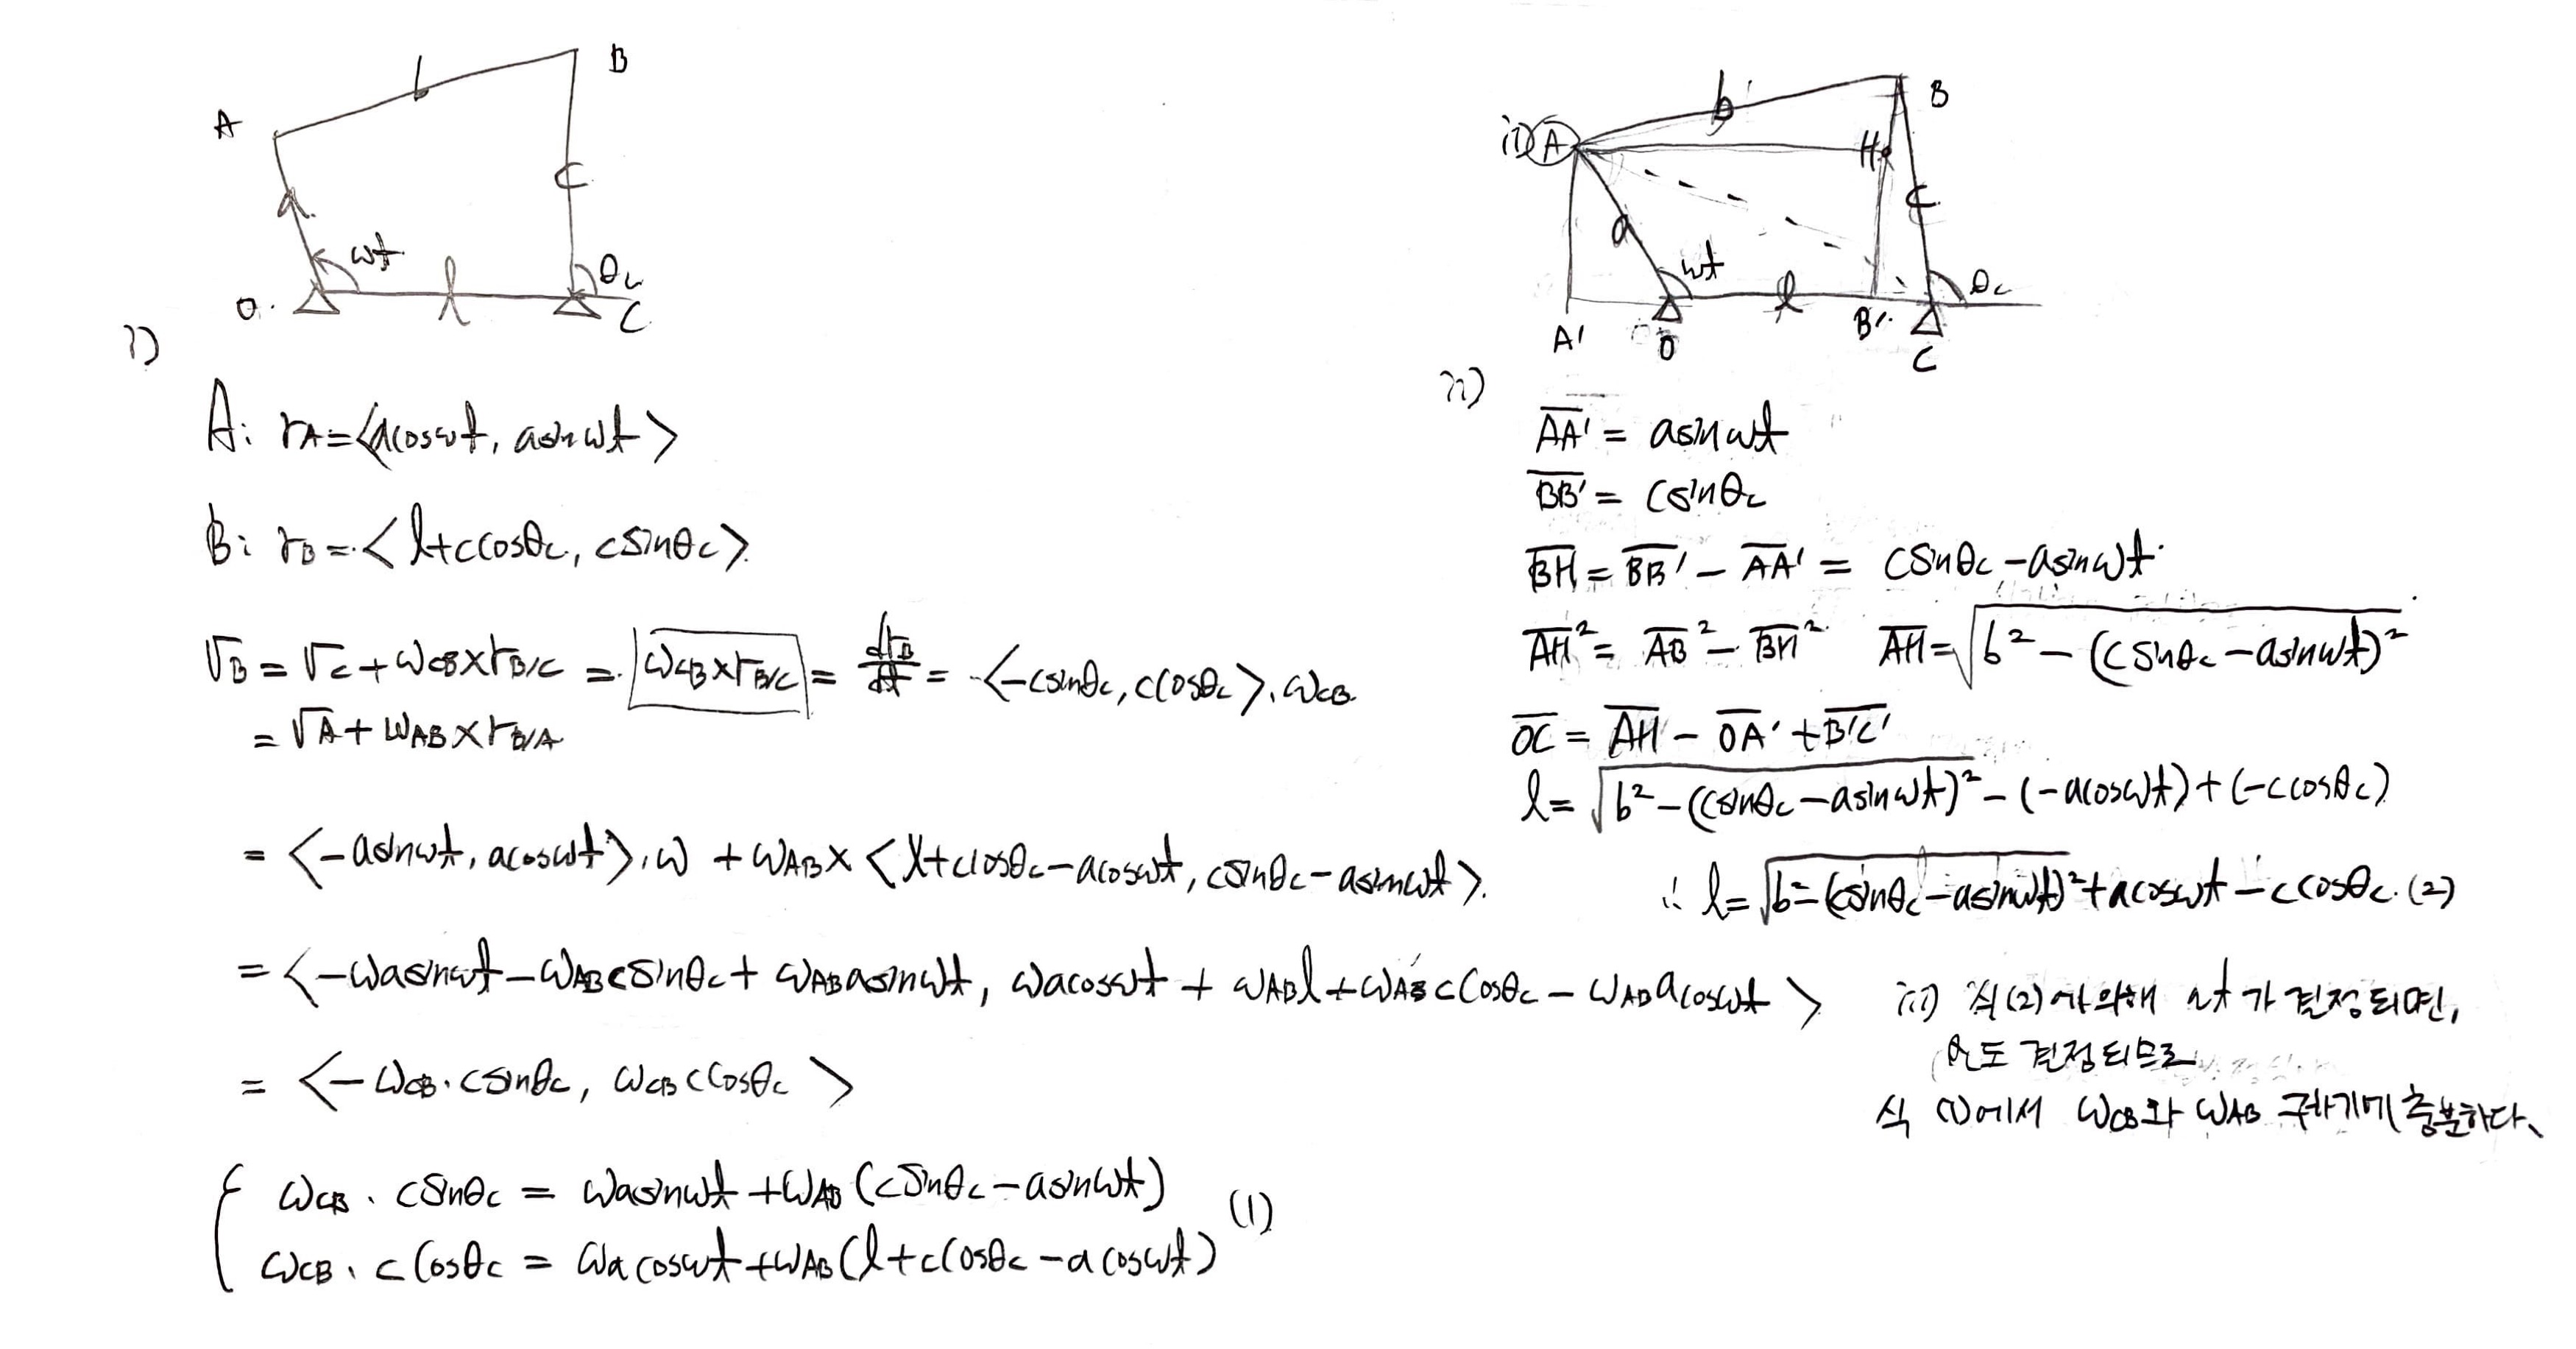 A
b
B
a
c
ωt
θc
O
l
C
i)
A: rA=<acosωt, asinωt>
B: rB=<l+ccosθc, csinθc>
VB = VC+ωCB×rB/C = ωCB×rB/C = drB/dt = <-csinθc, ccosθc>·ωCB
= VA+ωAB×rB/A
= <-asinωt, acosωt>·ω +ωAB×<l+ccosθc-acosωt, csinθc-asinωt>
= <-ωasinωt-ωABcsinθc+ωABasinωt, ωacosωt+ωABl+ωABccosθc-ωABacosωt>
= <-ωCB·csinθc, ωCBccosθc>
{ ωCB·csinθc = ωasinωt+ωAB(csinθc-asinωt)
ωCB·ccosθc = ωacosωt+ωAB(l+ccosθc-acosωt) (1)
b
B
ii) A
H
c
a
ωt
l
θc
A'
O
B'
C
ii)
A̅A̅'̅ = asinωt
B̅B̅'̅ = csinθc
B̅H̅ = B̅B̅'̅ - A̅A̅'̅ = csinθc-asinωt
A̅H̅² = A̅B̅² - B̅H̅² A̅H̅=√(b²-(csinθc-asinωt)²)
O̅C̅ = A̅H̅ - O̅A̅'̅ + B̅'̅C̅'̅
l=√(b²-(csinθc-asinωt)²)-(-acosωt)+(-ccosθc)
∴ l=√(b²-(csinθc-asinωt)²)+acosωt-ccosθc. (2)
iii) 식(2)에 의해 ωt가 결정되면,
θc도 결정되므로
식 (1)에서 ωCB와 ωAB 구하기에 충분하다.